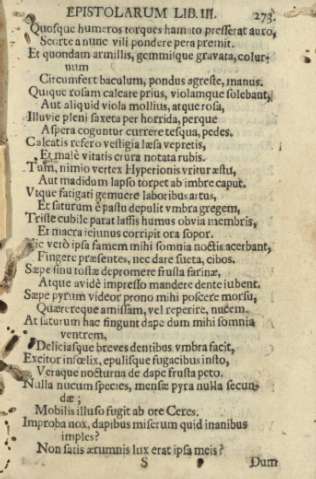 EPISTOLARUM LIB. III. 273
Quosque humeros torques hamato presserat auro,
Scortea nunc vili pondere pera premit.
Et quondam armillis, gemmisque gravata, colur-
num
Circumfert baculum, pondus agreste, manus.
Quique rosam calcare prius, violamque solebant,
Aut aliquid viola mollius, atque rosa,
Illuvie pleni saxeta per horrida, perque
Aspera coguntur currere tesqua, pedes.
Calcatis refero vestigia læsa vepretis,
Et malè vitatis crura notata rubis.
Tum, nimio vertex Hyperionis vritur æstu,
Aut madidum lapso torpet ab imbre caput.
Vtque fatigati gemuere laboribus artus,
Et saturum è pastu depulit vmbra gregem,
Triste cubile parat lassis humus obvia membris,
Et macra ieiunus corripit ora sopor.
Hic verò ipsa famem mihi somnia noctis acerbant,
Fingere præsentes, nec dare sueta, cibos.
Sæpe sinu tostæ depromere frusta farinæ,
Atque avidè impresso mandere dente iubent.
Sæpe pyrum videor prono mihi poscere morsu,
Quærereque amissam, vel reperire, nucem.
At saturum hac fingunt dape dum mihi somnia
ventrem,
Deliciasque breves dentibus vmbra facit,
Excitor infœlix, epulisque fugacibus insto,
Veraque nocturna de dape frusta peto.
Nulla nucum species, mensæ pyra nulla secun-
dæ;
Mobilis illuso fugit ab ore Ceres.
Improba nox, dapibus miserum quid inanibus
imples?
Non satis ærumnis lux erat ipsa meis?
S Dum